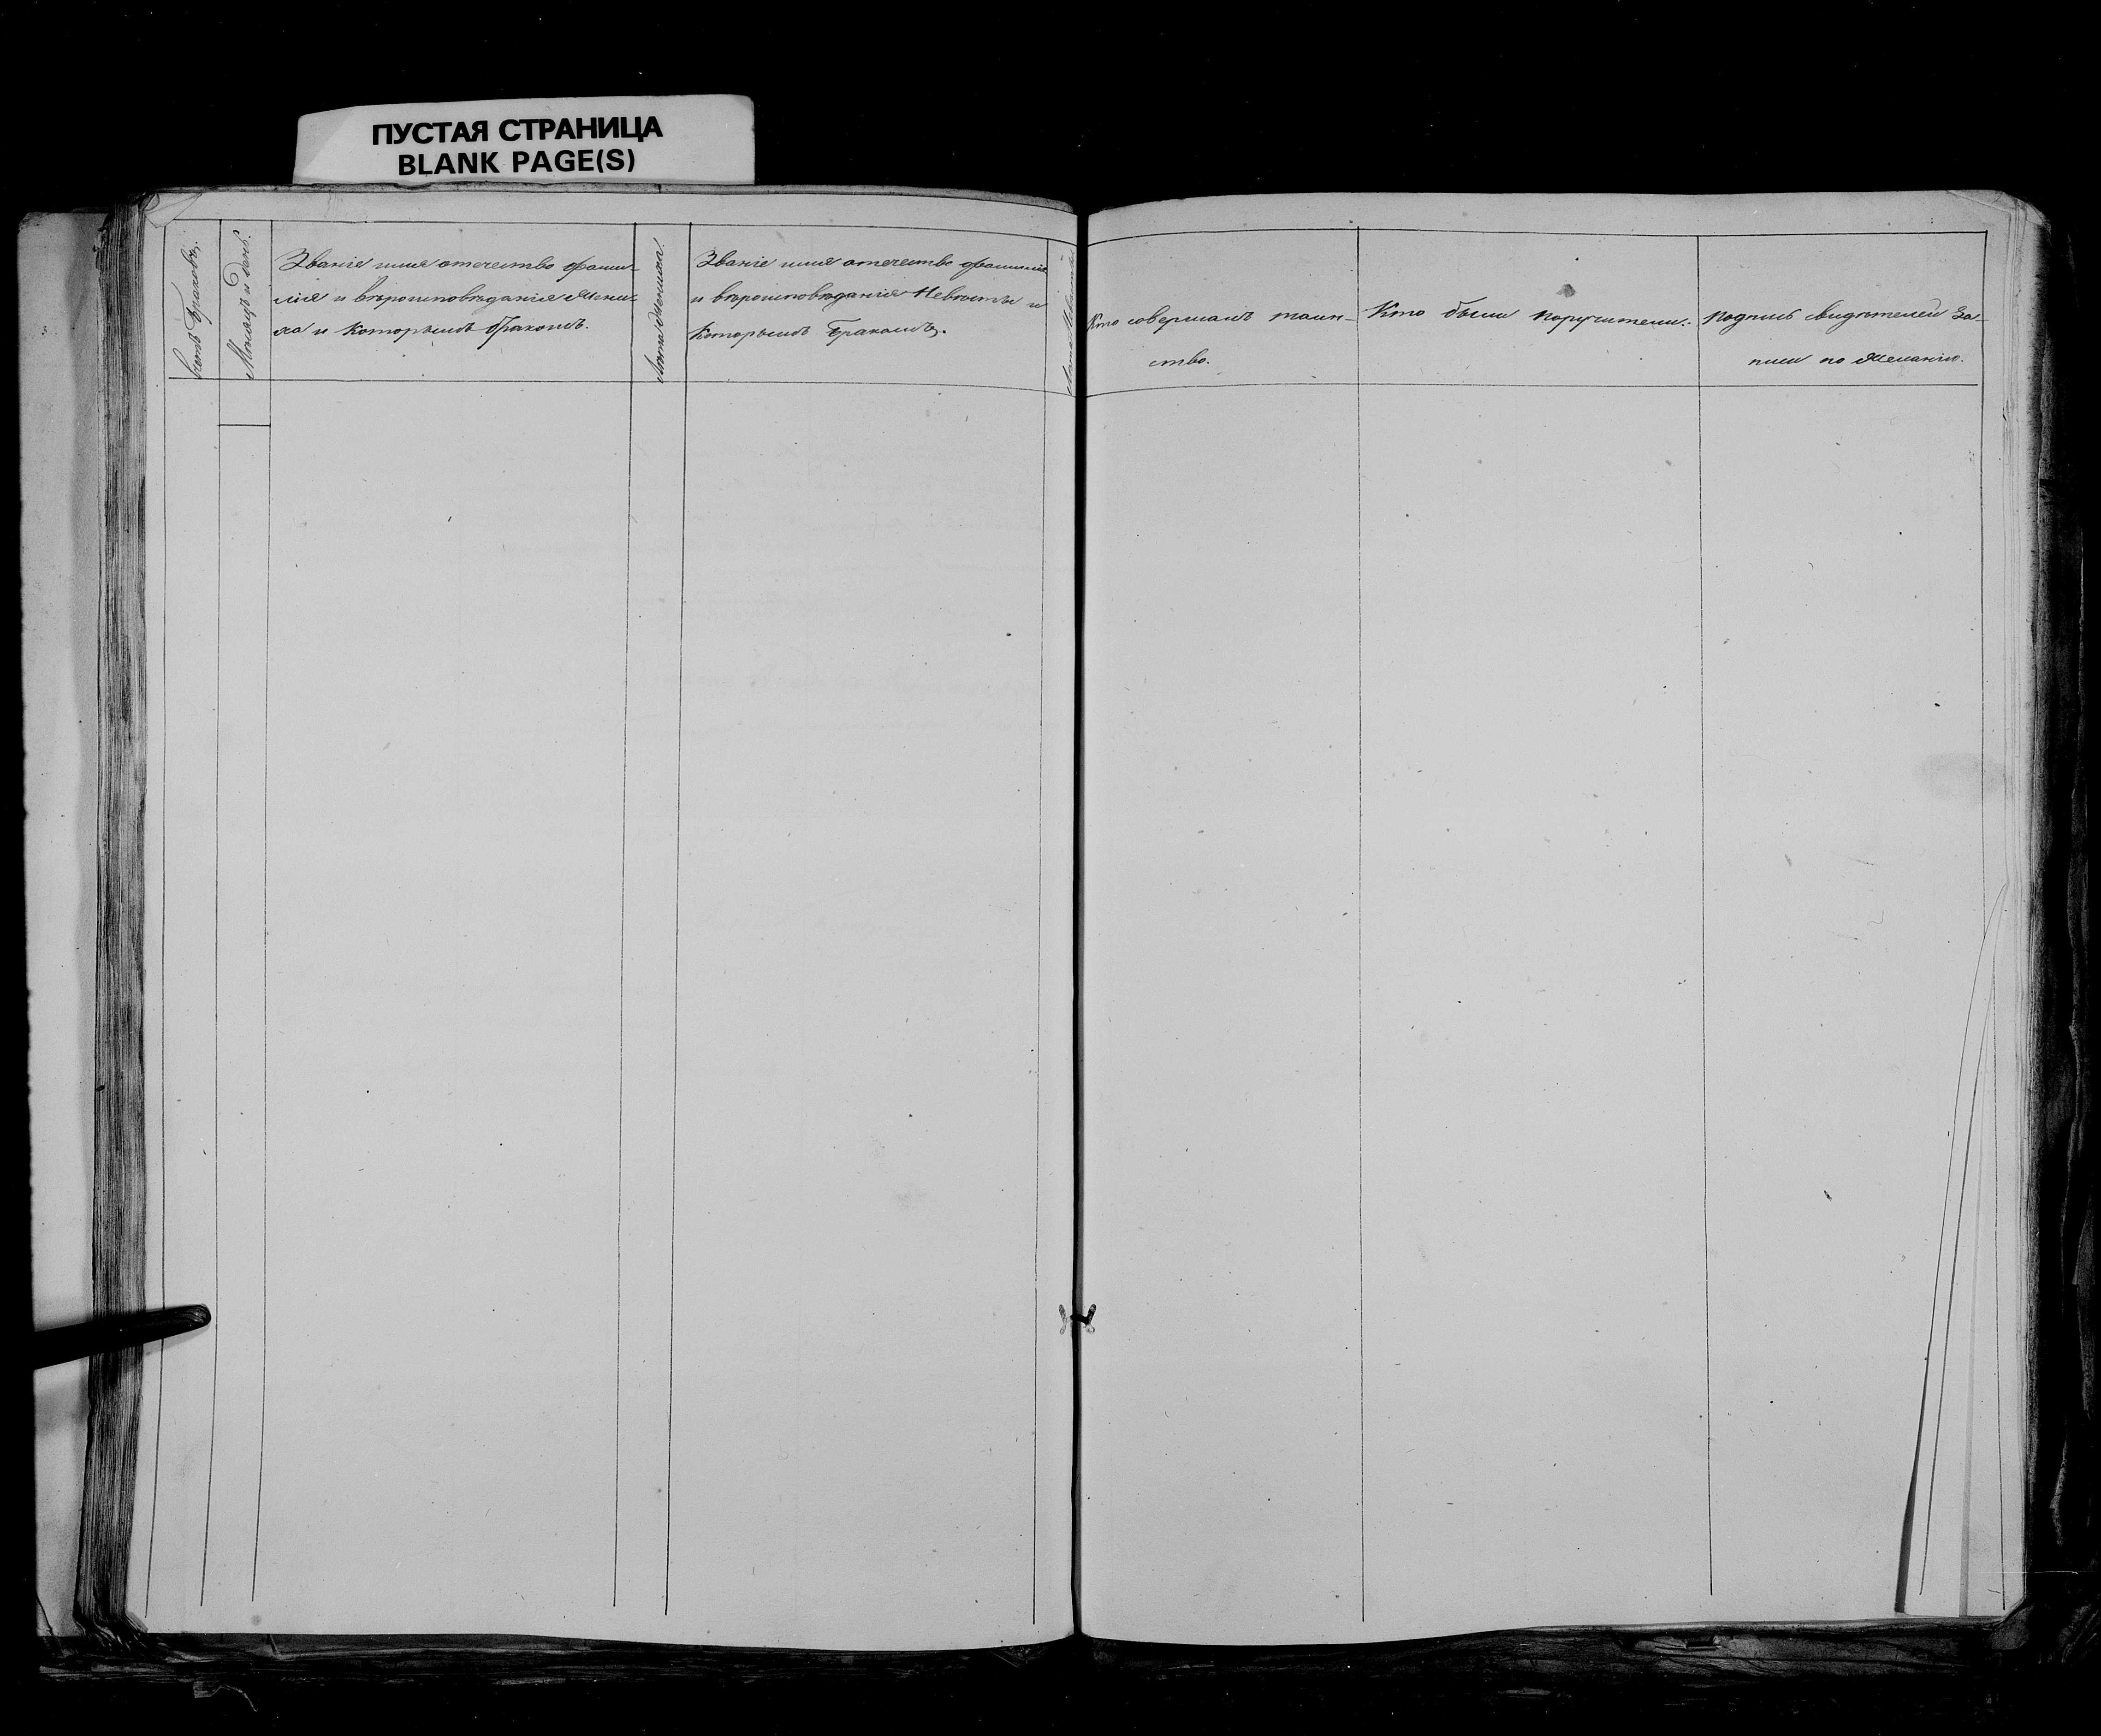 ПУСТАЯ СТРАНИЦА
BLANK PAGE(S)
Счетъ браковъ.
Мѣсяцъ и день.
Званіе имя отечество фами-
лія и вѣроисповѣданія жени-
ха и которымъ бракомъ.
Лета жениха.
Званіе имя отечество фамилія
и вѣроисповѣданія невѣсты и
которымъ бракомъ.
Лета невѣсты
Кто совершалъ таин-
ство.
Кто были поручители.
Подпись свидѣтелей за-
писи по желанію.